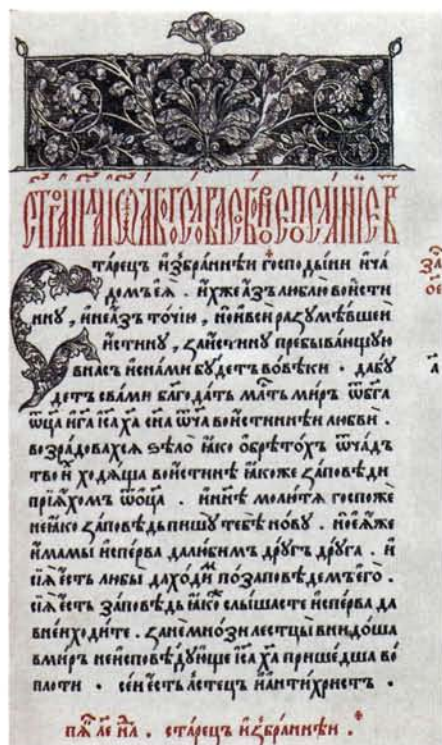 старецъ и҆збраннѣи госпоⷤды́ни и҆ча́
домъ е҆ѧ̀ . и҆хже а҆зъ люблю во и҆сти
нну , и҆неа҆зъ то́чїю , но и҆вси разꙋмѣвшеи
и҆стиннꙋ , за и҆стиннꙋ пребыва́ющꙋю
внасъ и҆снами бꙋ́детъ во́вѣки . дабꙋ́
детъ сва́ми благода́ть млⷭ҇ть ми́ръ ѿбг҃а
ѿц҃а и҆гⷭ҇а і҆с҃а хⷭ҇а сн҃а ѿч҃а во и҆стиннѣ и҆ любвѝ .
возра́довахсѧ ѕѣло̀ ꙗ҆́ко ѡ҆брѣто́хъ ѿча́дъ
твои́ хо́дѧща во и҆стиннѣ ꙗ҆́коже за́повѣди
прїѧ́хомъ ѿѻц҃а . и҆нн҃ѣ молютѧ госпожѐ
неꙗ҆́ко за́повѣдь пишꙋ̀ тебѣ̀ но́вꙋ . но ю҆́же
и҆́мамы и҆спе́рва далю́бимъ дрꙋ́гъ дрꙋ́га . и҆
сїѧ̀ є҆́сть любы̀ дахо́диⷨ по за́повѣдемъ є҆гѡ̀ .
сїѧ̀ є҆́сть за́повѣдь ꙗ҆́коⷤ слы́шасте и҆спе́рва да
вне́и хо́дите . занѐ мно́зи лестцы̀ внидо́ша
вми́ръ неи҆сповѣ́дꙋюще і҆с҃а хⷭ҇а прише́дша во́
плоти . се́и є҆́сть ле́стецъ и҆ а҆нтихри́стъ .
старецъ и҆збраннѣи .